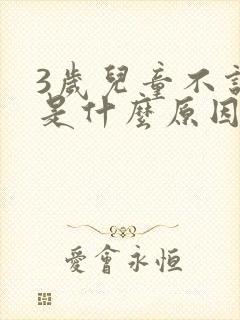 3歲兒童不
是什麼原因
愛會永恒